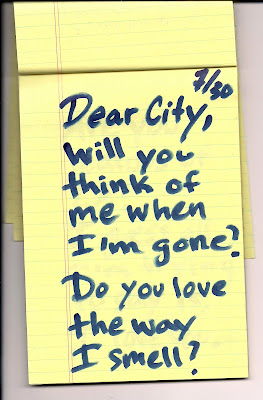 7/30
Dear City,
Will you
think of
me when
I'm gone?
Do you love
the way
I smell?